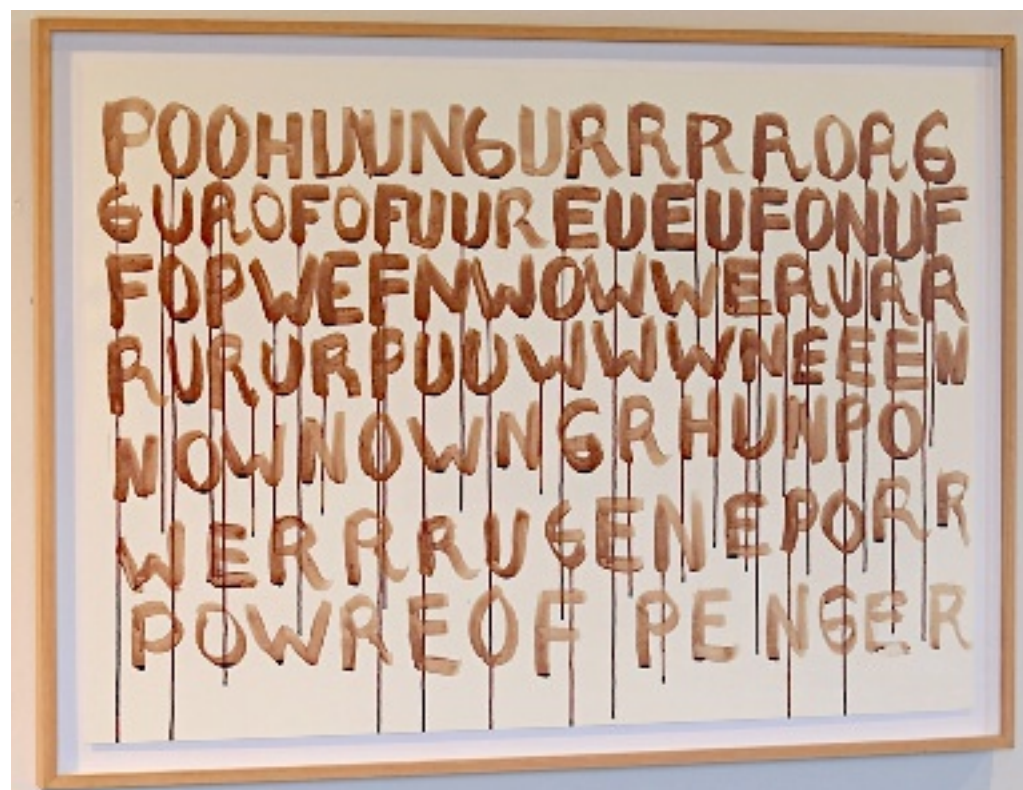 POOHUUNGURRRRORG
GUROFOFUUREUEUFONUF
FOPWEFNWOWWERURR
RURURPUUWWWNEEEN
NOWNOWNGRHUNPO
WERRRUGENEPORR
POWREOF PENGER